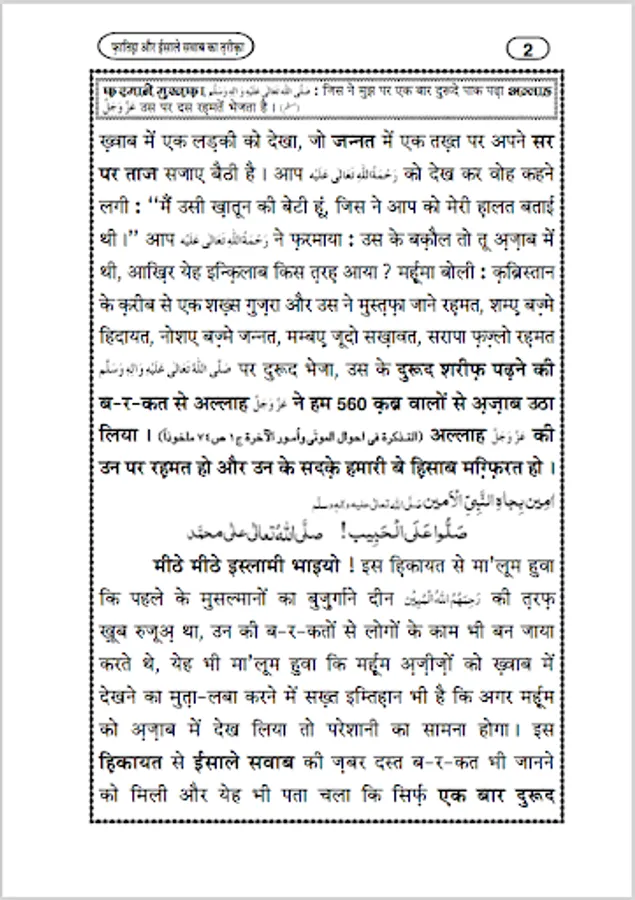 फ़ातिह़ा और ईसाले सवाब का त़रीक़ा
2
फ़रमाने मुस्त़फ़ा صَلَّى اللهُ تَعَالٰى عَلَيْهِ وَاٰلِهٖ وَسَلَّم : जिस ने मुझ पर एक बार दुरूदे पाक पढ़ा अल्लाह
عَزَّ وَجَلَّ उस पर दस रह़मतें भेजता है । (مسلم)
ख़्वाब में एक लड़की को देखा, जो जन्नत में एक तख़्त पर अपने सर
पर ताज सजाए बैठी है । आप رَحْمَةُ اللهِ تَعَالٰى عَلَيْه को देख कर वोह कहने
लगी : ‘‘मैं उसी ख़ातून की बेटी हूं, जिस ने आप को मेरी हालत बताई
थी ।’’ आप رَحْمَةُ اللهِ تَعَالٰى عَلَيْه ने फ़रमाया : उस के बक़ौल तो तू अ़ज़ाब में
थी, आख़िर येह इन्क़िलाब किस त़रह़ आया ? मर्ह़ूमा बोली : क़ब्रिस्तान
के क़रीब से एक शख़्स गुज़रा और उस ने मुस्त़फ़ा जाने रह़मत, शम्ए बज़्मे
हिदायत, नोशए बज़्मे जन्नत, मम्बए जूदो सख़ावत, सरापा फ़ज़्लो रह़मत
صَلَّى اللهُ تَعَالٰى عَلَيْهِ وَاٰلِهٖ وَسَلَّم पर दुरूद भेजा, उस के दुरूद शरीफ़ पढ़ने की
ब-र-कत से अल्लाह عَزَّ وَجَلَّ ने हम 560 क़ब्र वालों से अ़ज़ाब उठा
लिया । (التذكرة فى احوال الموتٰى وأمور الآخرة ج١ ص٧٤ ماخوذاً) अल्लाह عَزَّ وَجَلَّ की
उन पर रह़मत हो और उन के सदक़े हमारी बे ह़िसाब मग़्फ़िरत हो ।
اٰمِين بِجَاهِ النَّبِىِّ الْاَمين صَلَّى الله تعالى عليه واٰلهٖ وسلَّم
صَلُّوْا عَلَى الْحَبِيب! صلَّى اللهُ تعالٰى على محمَّد
मीठे मीठे इस्लामी भाइयो ! इस ह़िकायत से मा'लूम हुवा
कि पहले के मुसल्मानों का बुज़ुर्गाने दीन رَحِمَهُمُ اللهُ الْمُبِيْن की त़रफ़
ख़ूब रुजूअ़ था, उन की ब-र-कतों से लोगों के काम भी बन जाया
करते थे, येह भी मा'लूम हुवा कि मर्ह़ूम अ़ज़ीज़ों को ख़्वाब में
देखने का मुत़ा-लबा करने में सख़्त इम्तिह़ान भी है कि अगर मर्ह़ूम
को अ़ज़ाब में देख लिया तो परेशानी का सामना होगा । इस
ह़िकायत से ईसाले सवाब की ज़बर दस्त ब-र-कत भी जानने
को मिली और येह भी पता चला कि सिर्फ़ एक बार दुरूद